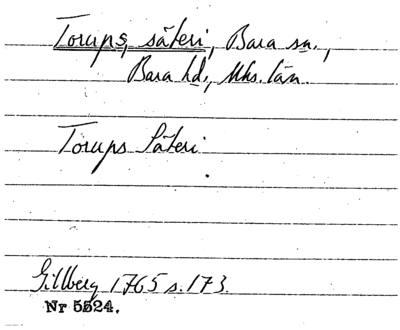 Torups säteri, Bara sn.,
Bara hd., Mhs. län.
Torups Säteri
Gillberg 1765 s. 173.
Nr 5524.